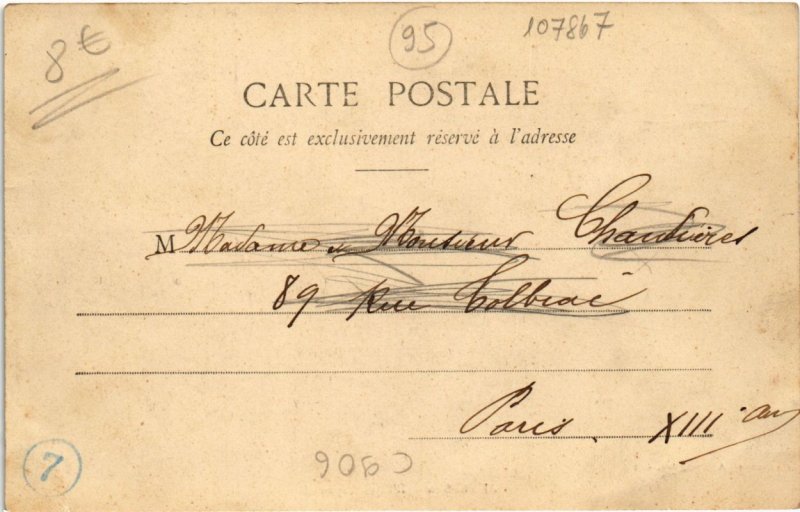 8 €
95
107867
CARTE POSTALE
Ce côté est exclusivement réservé à l'adresse
M Madame et Monsieur
89 Rue Tolbiac
Paris. XIII
7